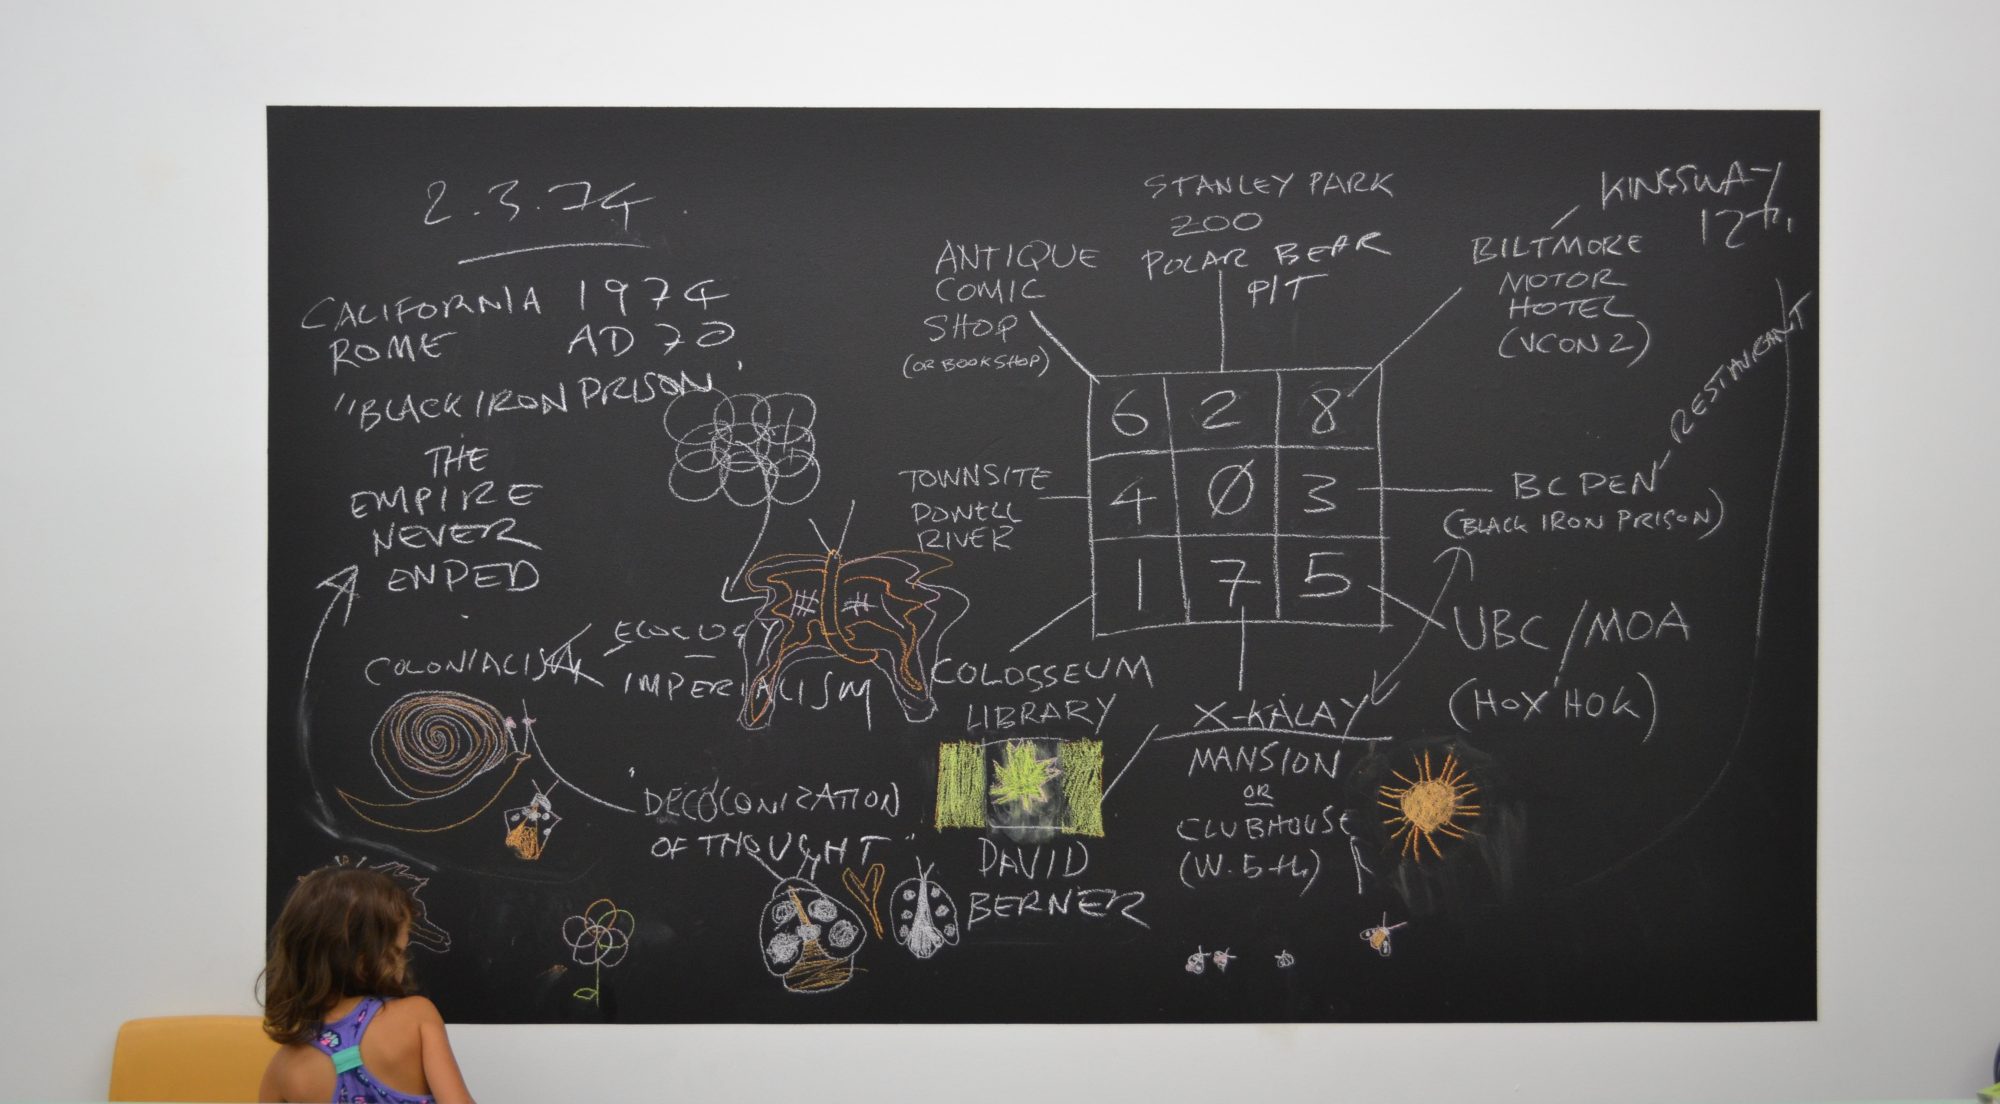 2.3.74.
CALIFORNIA 1974
ROME AD 70
"BLACK IRON PRISON"
THE
EMPIRE
NEVER
ENDED
ECOLOGY
COLONIALISM
IMPERIALISM
"DECOLONIZATION
OF THOUGHT"
ANTIQUE
COMIC
SHOP
(OR BOOKSHOP)
STANLEY PARK
ZOO
POLAR BEAR
PIT
KINGSWAY
12th
BILTMORE
MOTOR
HOTEL
(VCON 2)
6 2 8
4 Ø 3
1 7 5
TOWNSITE
POWELL
RIVER
RESTAURANT
BC PEN
(BLACK IRON PRISON)
UBC/MOA
(HOX HOK)
COLOSSEUM
LIBRARY
X-KALAY
MANSION
OR
CLUBHOUSE
(W. 5th)
DAVID
BERNER